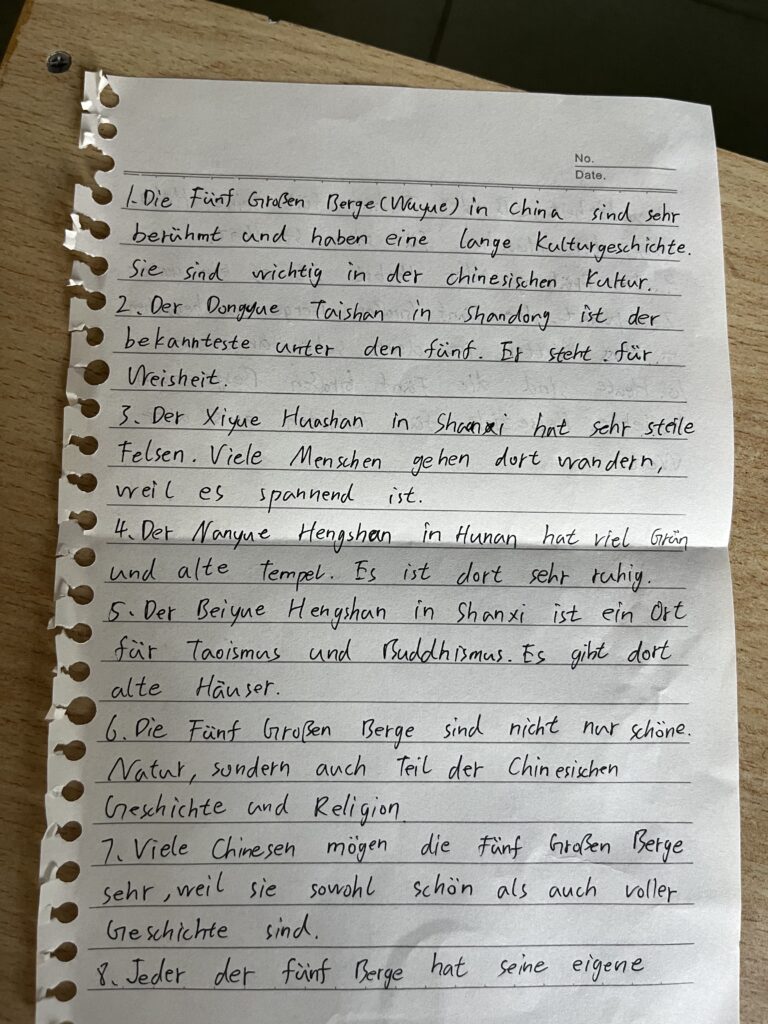 No.
Date.
1. Die Fünf Großen Berge (Wuyue) in China sind sehr
berühmt und haben eine lange Kulturgeschichte.
Sie sind wichtig in der chinesischen Kultur.
2. Der Dongyue Taishan in Shandong ist der
bekannteste unter den fünf. Er steht für
Weisheit.
3. Der Xiyue Huashan in Shanxi hat sehr steile
Felsen. Viele Menschen gehen dort wandern,
weil es spannend ist.
4. Der Nanyue Hengshan in Hunan hat viel Grün
und alte Tempel. Es ist dort sehr ruhig.
5. Der Beiyue Hengshan in Shanxi ist ein Ort
für Taoismus und Buddhismus. Es gibt dort
alte Häuser.
6. Die Fünf Großen Berge sind nicht nur schöne.
Natur, sondern auch Teil der Chinesischen
Geschichte und Religion.
7. Viele Chinesen mögen die Fünf Großen Berge
sehr, weil sie sowohl schön als auch voller
Geschichte sind.
8. Jeder der fünf Berge hat seine eigene